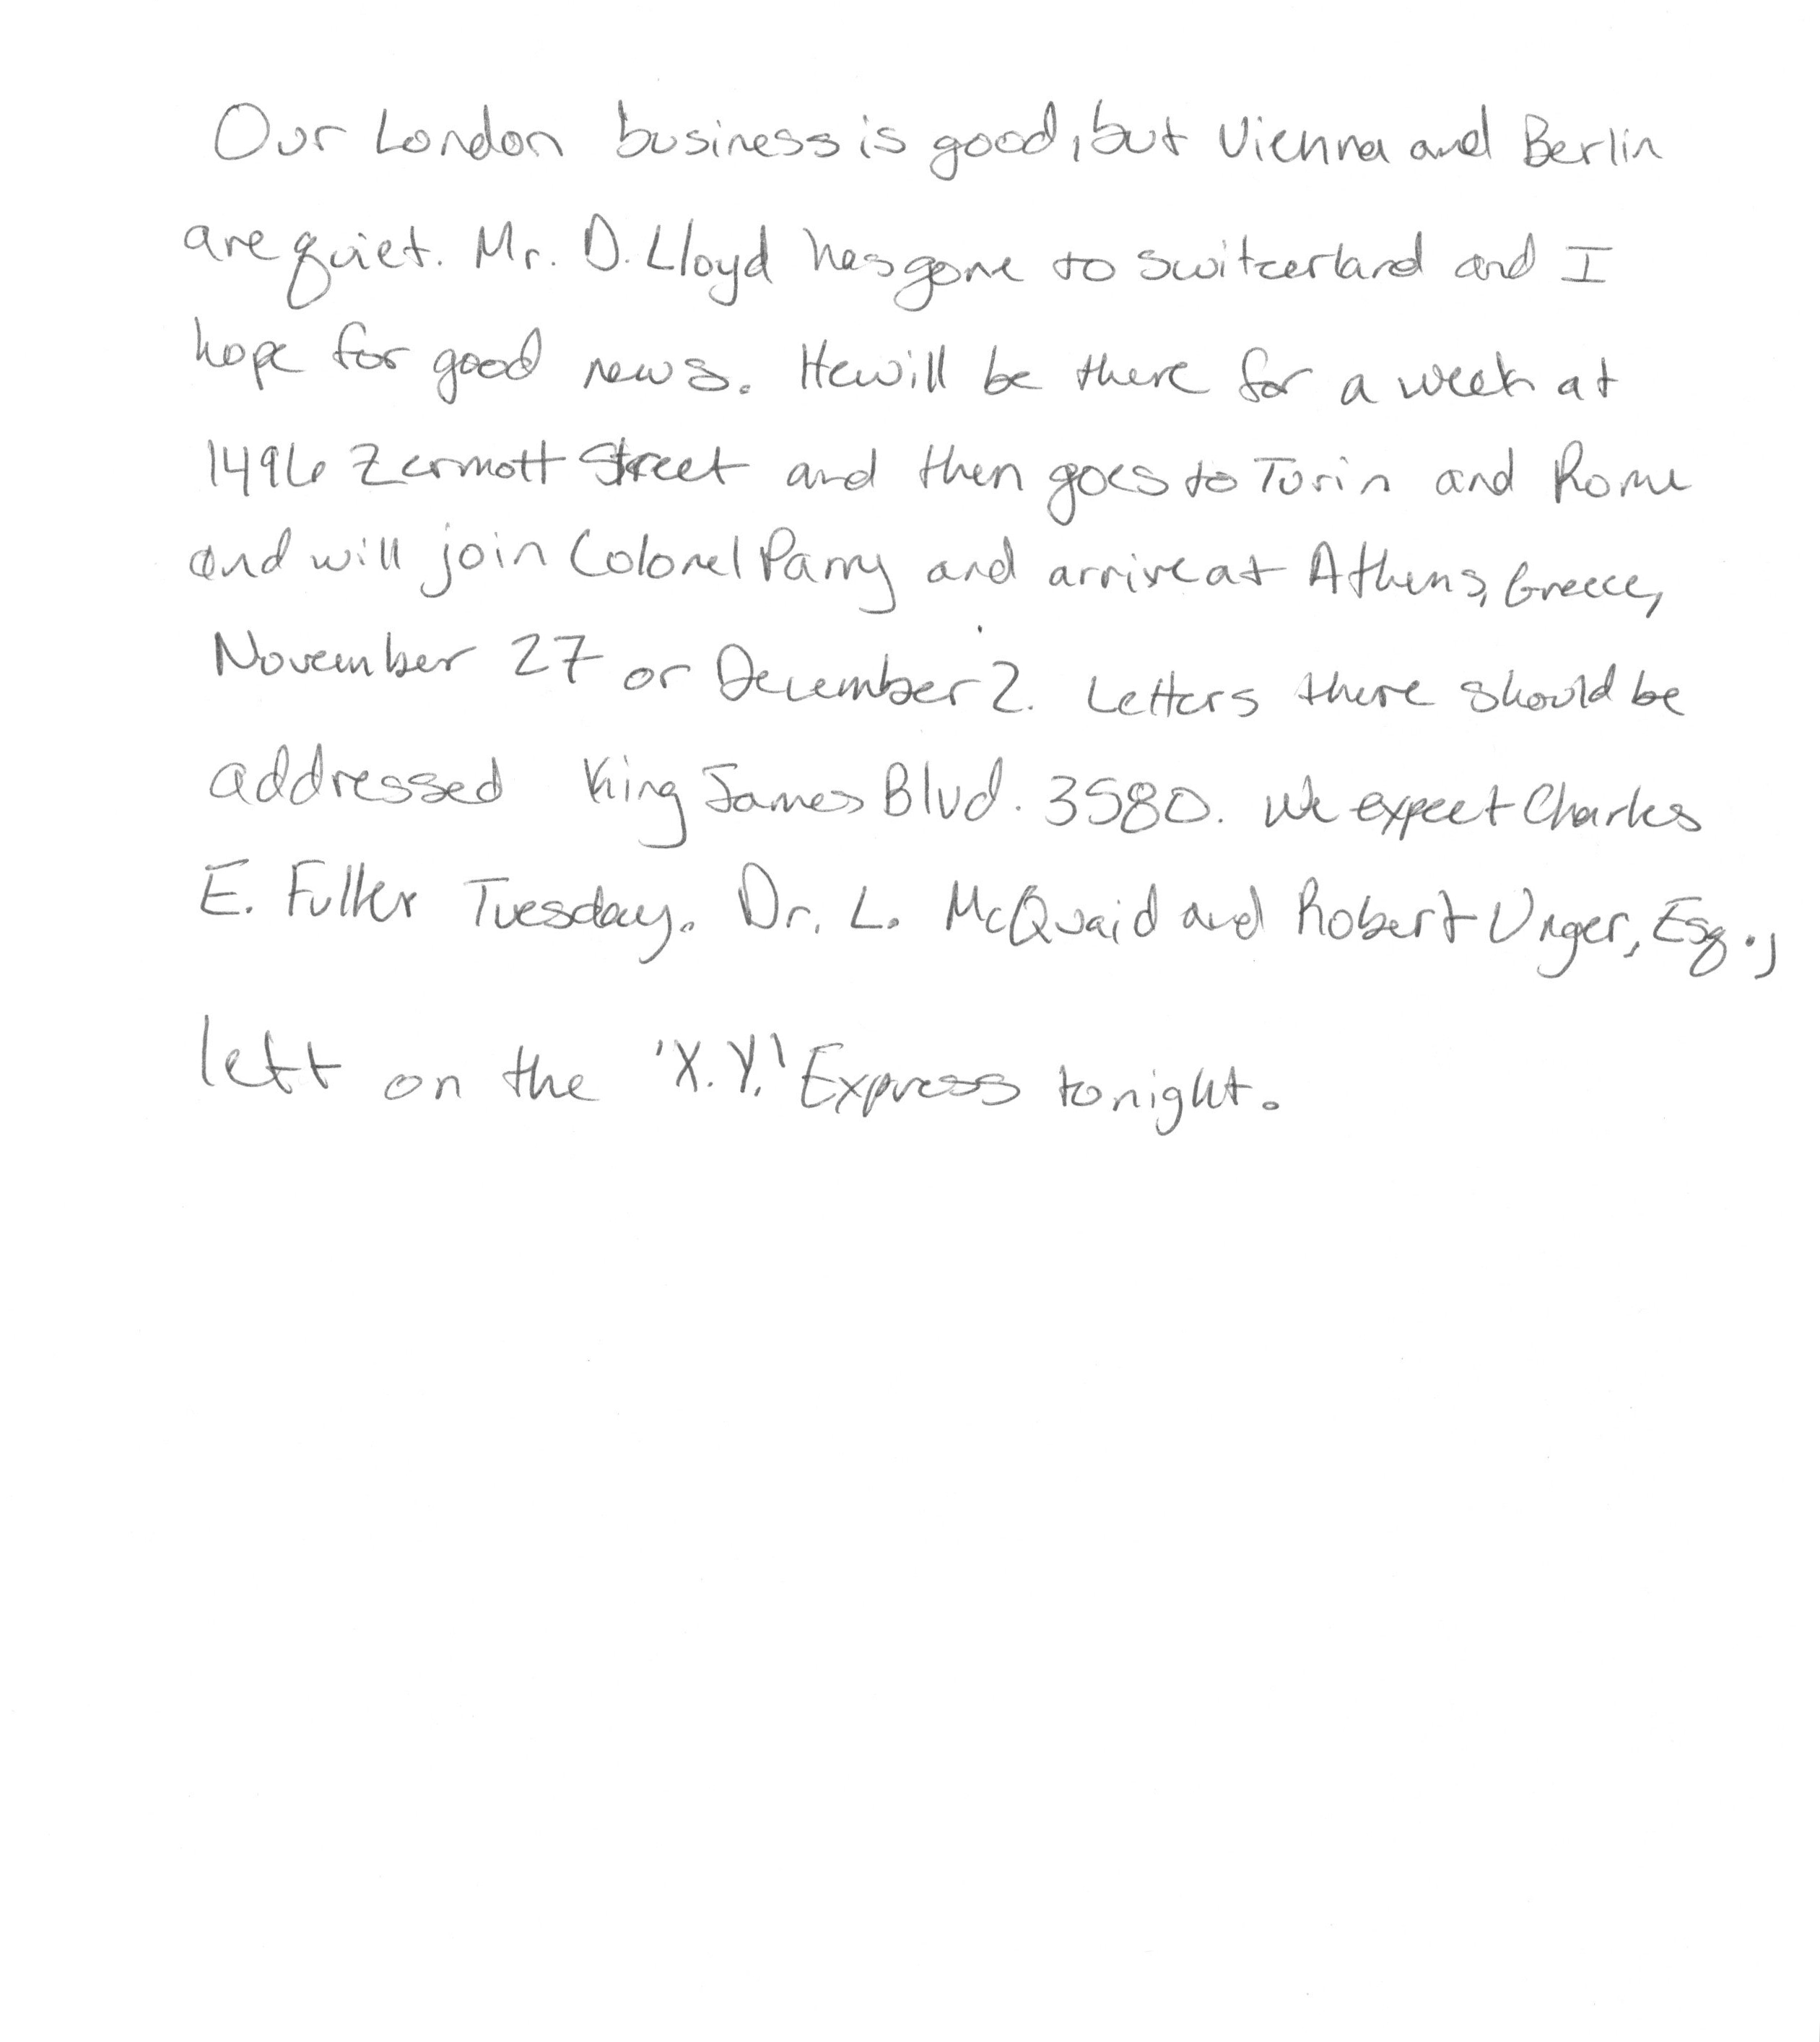 Our London business is good, but Vienna and Berlin
are quiet. Mr. D. Lloyd has gone to Switzerland and I
hope for good news. He will be there for a week at
1496 Zermott Street and then goes to Turin and Rome
and will join Colonel Parry and arrive at Athens, Greece,
November 27 or December 2. Letters there should be
addressed King James Blvd. 3580. We expect Charles
E. Fuller Tuesday. Dr. L. McQuaid and Robert Unger, Esq.,
left on the 'X.Y.' Express tonight.